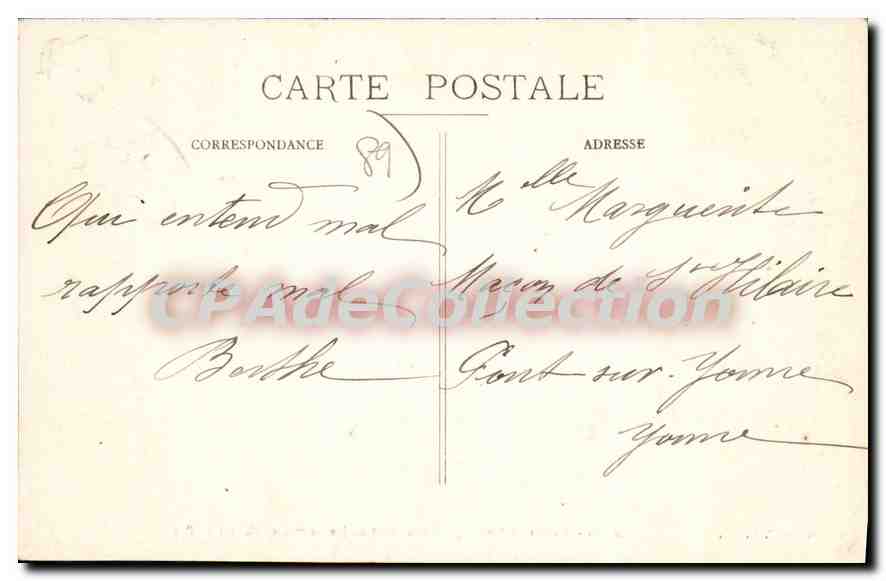 CARTE POSTALE
CORRESPONDANCE
89
ADRESSE
Qui entend mal
rapporte mal
Berthe
Melle Marguerite
Maçon de St Hilaire
Pont-sur-Yonne
Yonne
CPAdeCollection